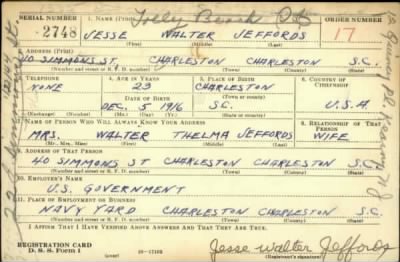 SERIAL NUMBER
1. NAME (Print)
ORDER NUMBER
Folly Beach
2748
JESSE WALTER JEFFORDS
17
(First) (Middle) (Last)
2. ADDRESS (Print)
40 SIMMONS ST, CHARLESTON CHARLESTON S.C.
(Number and street or R. F. D. number) (Town) (County) (State)
3. TELEPHONE
4. AGE IN YEARS
5. PLACE OF BIRTH
6. COUNTRY OF CITIZENSHIP
NONE
23
CHARLESTON
(Town or county)
DATE OF BIRTH
DEC. 5 1916
S.C.
U.S.A.
(Exchange) (Number)
(Mo.) (Day) (Yr.)
(State or country)
7. NAME OF PERSON WHO WILL ALWAYS KNOW YOUR ADDRESS
8. RELATIONSHIP OF THAT PERSON
MRS. WALTER THELMA JEFFORDS
WIFE
(Mr., Mrs., Miss) (First) (Middle) (Last)
9. ADDRESS OF THAT PERSON
40 SIMMONS ST CHARLESTON CHARLESTON S.C.
(Number and street or R. F. D. number) (Town) (County) (State)
10. EMPLOYER'S NAME
U.S. GOVERNMENT
11. PLACE OF EMPLOYMENT OR BUSINESS
NAVY YARD CHARLESTON CHARLESTON S.C.
(Number and street or R. F. D. number) (Town) (County) (State)
I AFFIRM THAT I HAVE VERIFIED ABOVE ANSWERS AND THAT THEY ARE TRUE.
REGISTRATION CARD
D. S. S. Form 1
(over)
16-17105
Jesse Walter Jeffords
(Registrant's signature)